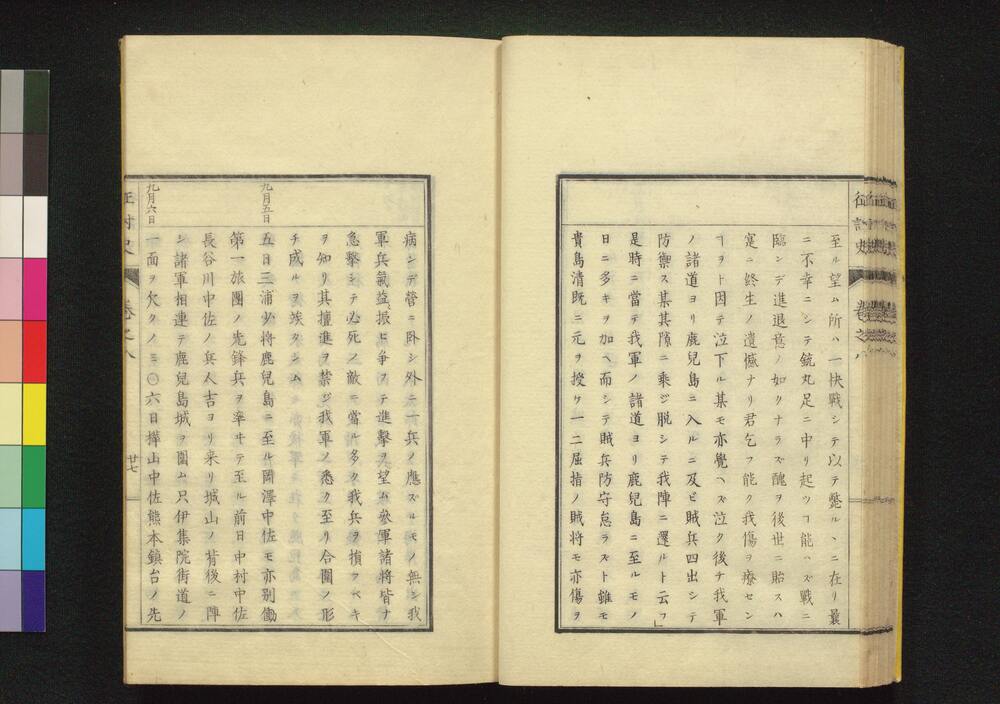 征討史 卷之八
至ル望ム所ハ一快戰シテ以テ斃ルヽニ在リ曩
ニ不幸ニシテ銃丸足ニ中リ起ツ能ハズ戰ニ
臨ンデ進退意ノ如クナラズ醜ヲ後世ニ貽スハ
寔ニ終生ノ遺憾ナリ君乞フ能ク我傷ヲ療セン
ヿヲト因テ泣下ル某モ亦覺ヘズ泣ク後チ我軍
ノ諸道ヨリ鹿兒島ニ入ルニ及ビ賊兵四出シテ
防禦ス某其隙ニ乘ジ脱シテ我陣ニ還ルト云フ」
是時ニ當テ我軍ノ諸道ヨリ鹿兒島ニ至ルモノ
日ニ多キヲ加ヘ而シテ賊兵防守怠ラズト雖モ
貴島清既ニ元ヲ授ケ一二屈指ノ賊將モ亦傷ヲ
病ンデ營ニ臥シ外ニ一兵ノ應ズルモノ無シ我
軍兵氣益〻振ヒ争フテ進擊ヲ望ム參軍諸將皆ナ
急擊シテ必死ノ敵ニ當ル多ク我兵ヲ損フベキ
ヲ知リ其擅進ヲ禁ジ我軍ノ悉ク至リ合圍ノ形
チ成ルヲ竢タシム
九月五日
五日三浦少將鹿兒島ニ至ル岡澤中佐モ亦別働
第一旅團ノ先鋒兵ヲ率ヰテ至ル前日中村中佐
長谷川中佐ノ兵人吉ヨリ来リ城山ノ背後ニ陣
シ諸軍相連テ鹿兒島城ヲ圍ム只伊集院街道ノ
九月六日
一面ヲ欠クノミ〇六日樺山中佐熊本鎮台ノ先
征討史 卷之八 廿七